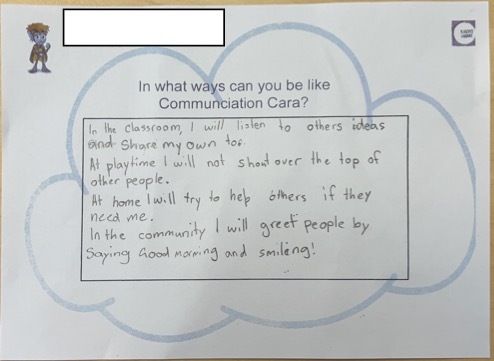 In what ways can you be like
Communciation Cara?
In the classroom, I will listen to others ideas
and share my own too.
At playtime I will not shout over the top of
other people.
At home I will try to help others if they
need me.
In the community I will greet people by
Saying Good morning and smiling!